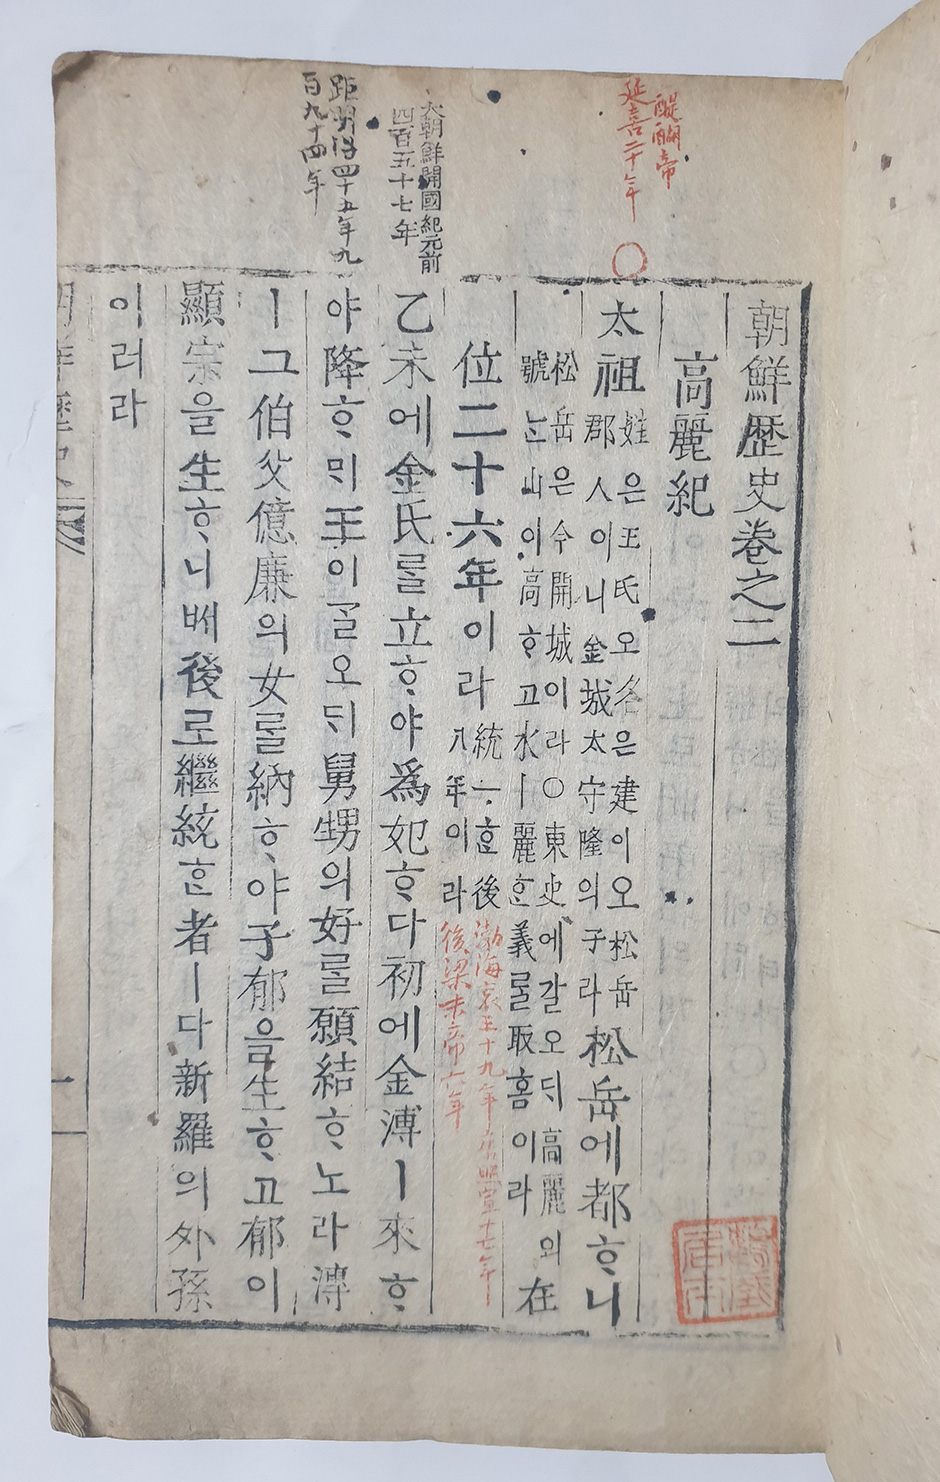 醍醐帝
延喜二十年
○
大朝鮮開國紀元前
四百五十七年
距明治四十五年九
百九十四年
朝鮮歷史卷之二
高麗紀
太祖
姓은王氏오名은建이오松岳
郡人이니金城太守隆의子라
松岳에都ᄒᆞ니
松岳은今開城이라○東史에갈오ᄃᆡ高麗의
號ᄂᆞᆫ山이高ᄒᆞ고水ㅣ麗ᄒᆞᆫ義를取홈이라
在
位二十六年이라
統一ᄒᆞᆫ後
八年이라
渤海哀王十九年
宣十七年
後梁末帝六年
乙未에金氏를立ᄒᆞ야爲妃ᄒᆞ다初에金溥ㅣ來ᄒᆞ
야降ᄒᆞᄆᆡ王이ᄀᆞᆯ오ᄃᆡ舅甥의好를願結ᄒᆞ노라溥
ㅣ그伯父億廉의女를納ᄒᆞ야子郁을生ᄒᆞ고郁이
顯宗을生ᄒᆞ니배後로繼統ᄒᆞᆫ者ㅣ다新羅의外孫
이러라